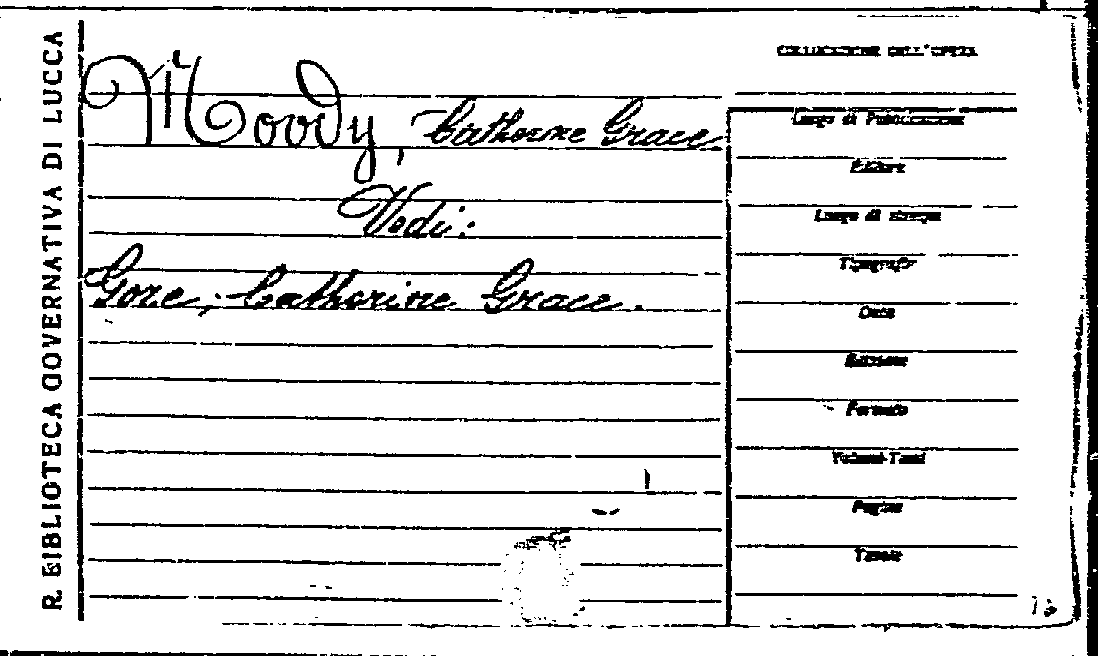 R. BIBLIOTECA GOVERNATIVA DI LUCCA
COLLOCAZIONE DELL'OPERA
Moody, Catherine Grace
Vedi:
Gore, Catherine Grace.
Luogo di Pubblicazione
Editore
Luogo di stampa
Tipografo
Data
Edizione
Formato
Volumi-Tomi
Pagine
Tavole